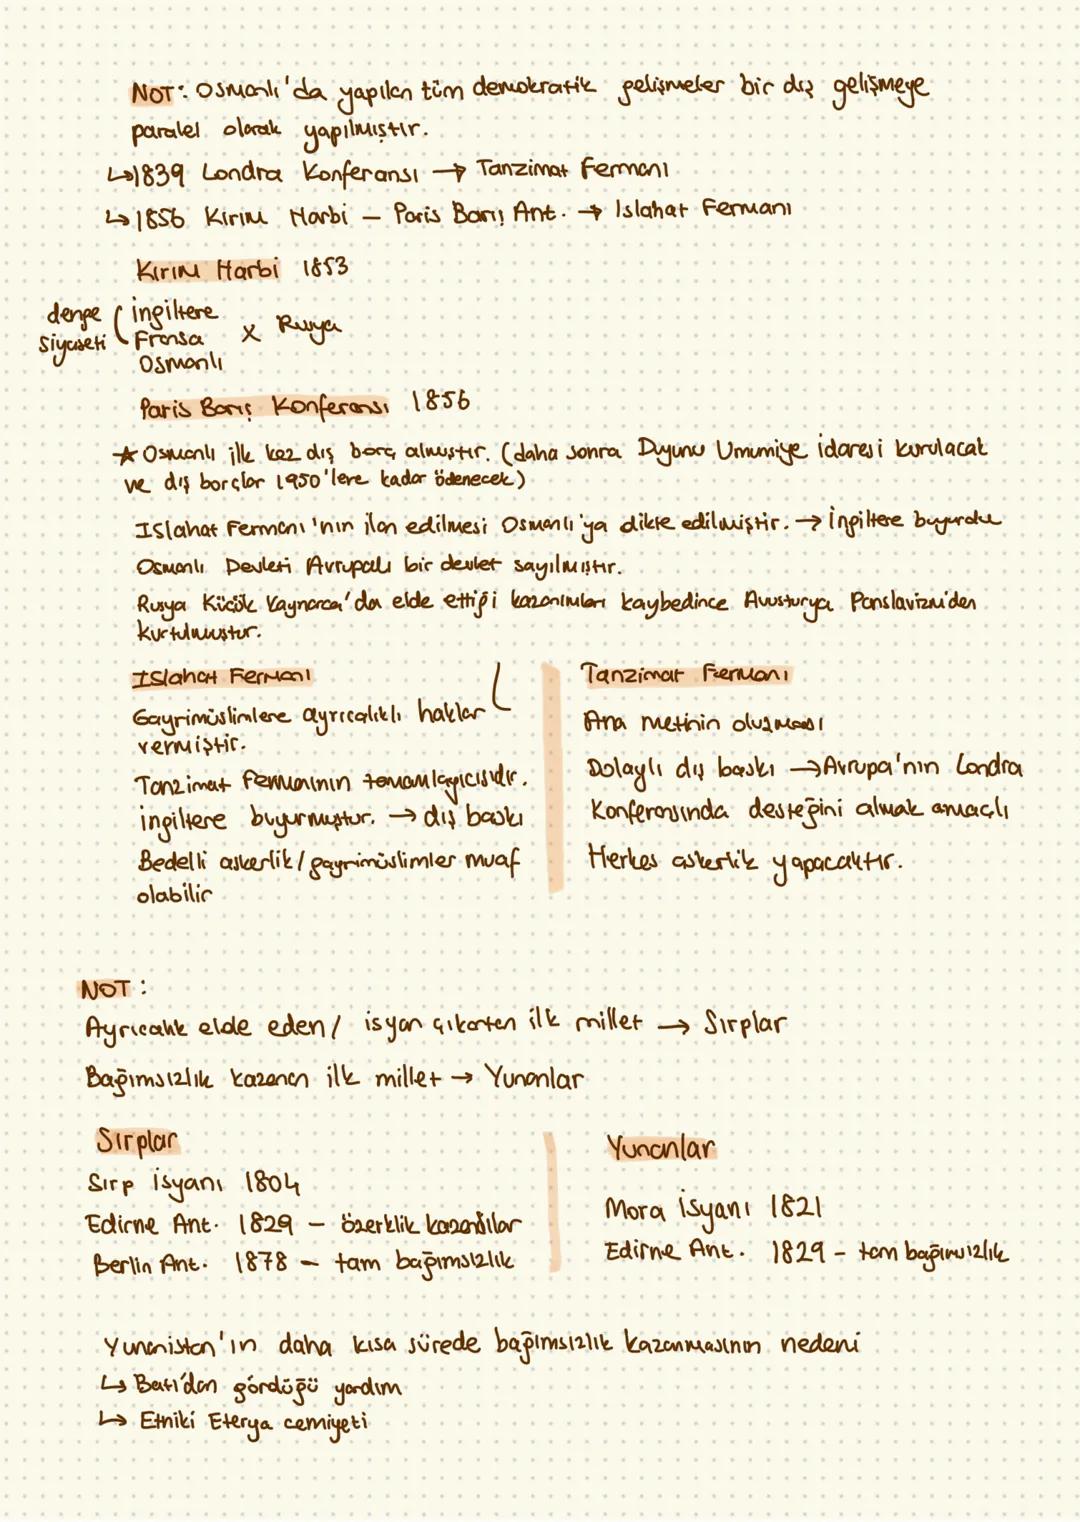 NOT: Osmanlı'da yapılan tüm demokratik gelişmeler bir dış gelişmeye
paralel olarak yapılmıştır.
↳1839 Londra Konferansı → Tanzimat Fermanı
↳1856 Kırım Harbi – Paris Barış Ant. → Islahat Fermanı
Kırım Harbi 1853
denge siyaseti ( İngiltere
Fransa x Rusya
Osmanlı
Paris Barış Konferansı 1856
★ Osmanlı ilk kez dış borç almıştır. (daha sonra Duyunu Umumiye idaresi kurulacak
ve dış borçlar 1950'lere kadar ödenecek)
Islahat Fermanı'nın ilan edilmesi Osmanlı'ya dikte edilmiştir. → İngiltere buyurdu
Osmanlı Devleti Avrupalı bir devlet sayılmıştır.
Rusya Küçük Kaynarca'da elde ettiği kazanımları kaybedince Avusturya Panslavizm'den
kurtulmuştur.
Islahat Fermanı
Gayrimüslimlere ayrıcalıklı haklar
vermiştir.
Tanzimat Fermanının tamamlayıcısıdır.
İngiltere buyurmuştur. → dış baskı
Bedelli askerlik/gayrimüslimler muaf
olabilir
Tanzimat Fermanı
Ana metnin oluşması
Dolaylı dış baskı → Avrupa'nın Londra
Konferansında desteğini almak amaçlı
Herkes askerlik yapacaktır.
NOT:
Ayrıcalık elde eden/ isyan çıkartan ilk millet → Sırplar
Bağımsızlık kazanan ilk millet → Yunanlar
Sırplar
Sırp İsyanı 1804
Edirne Ant. 1829 – özerklik kazandılar
Berlin Ant. 1878 – tam bağımsızlık
Yunanlar
Mora İsyanı 1821
Edirne Ant. 1829 – tam bağımsızlık
Yunanistan'ın daha kısa sürede bağımsızlık kazanmasının nedeni
↳ Batı'dan gördüğü yardım
↳ Etniki Eterya cemiyeti